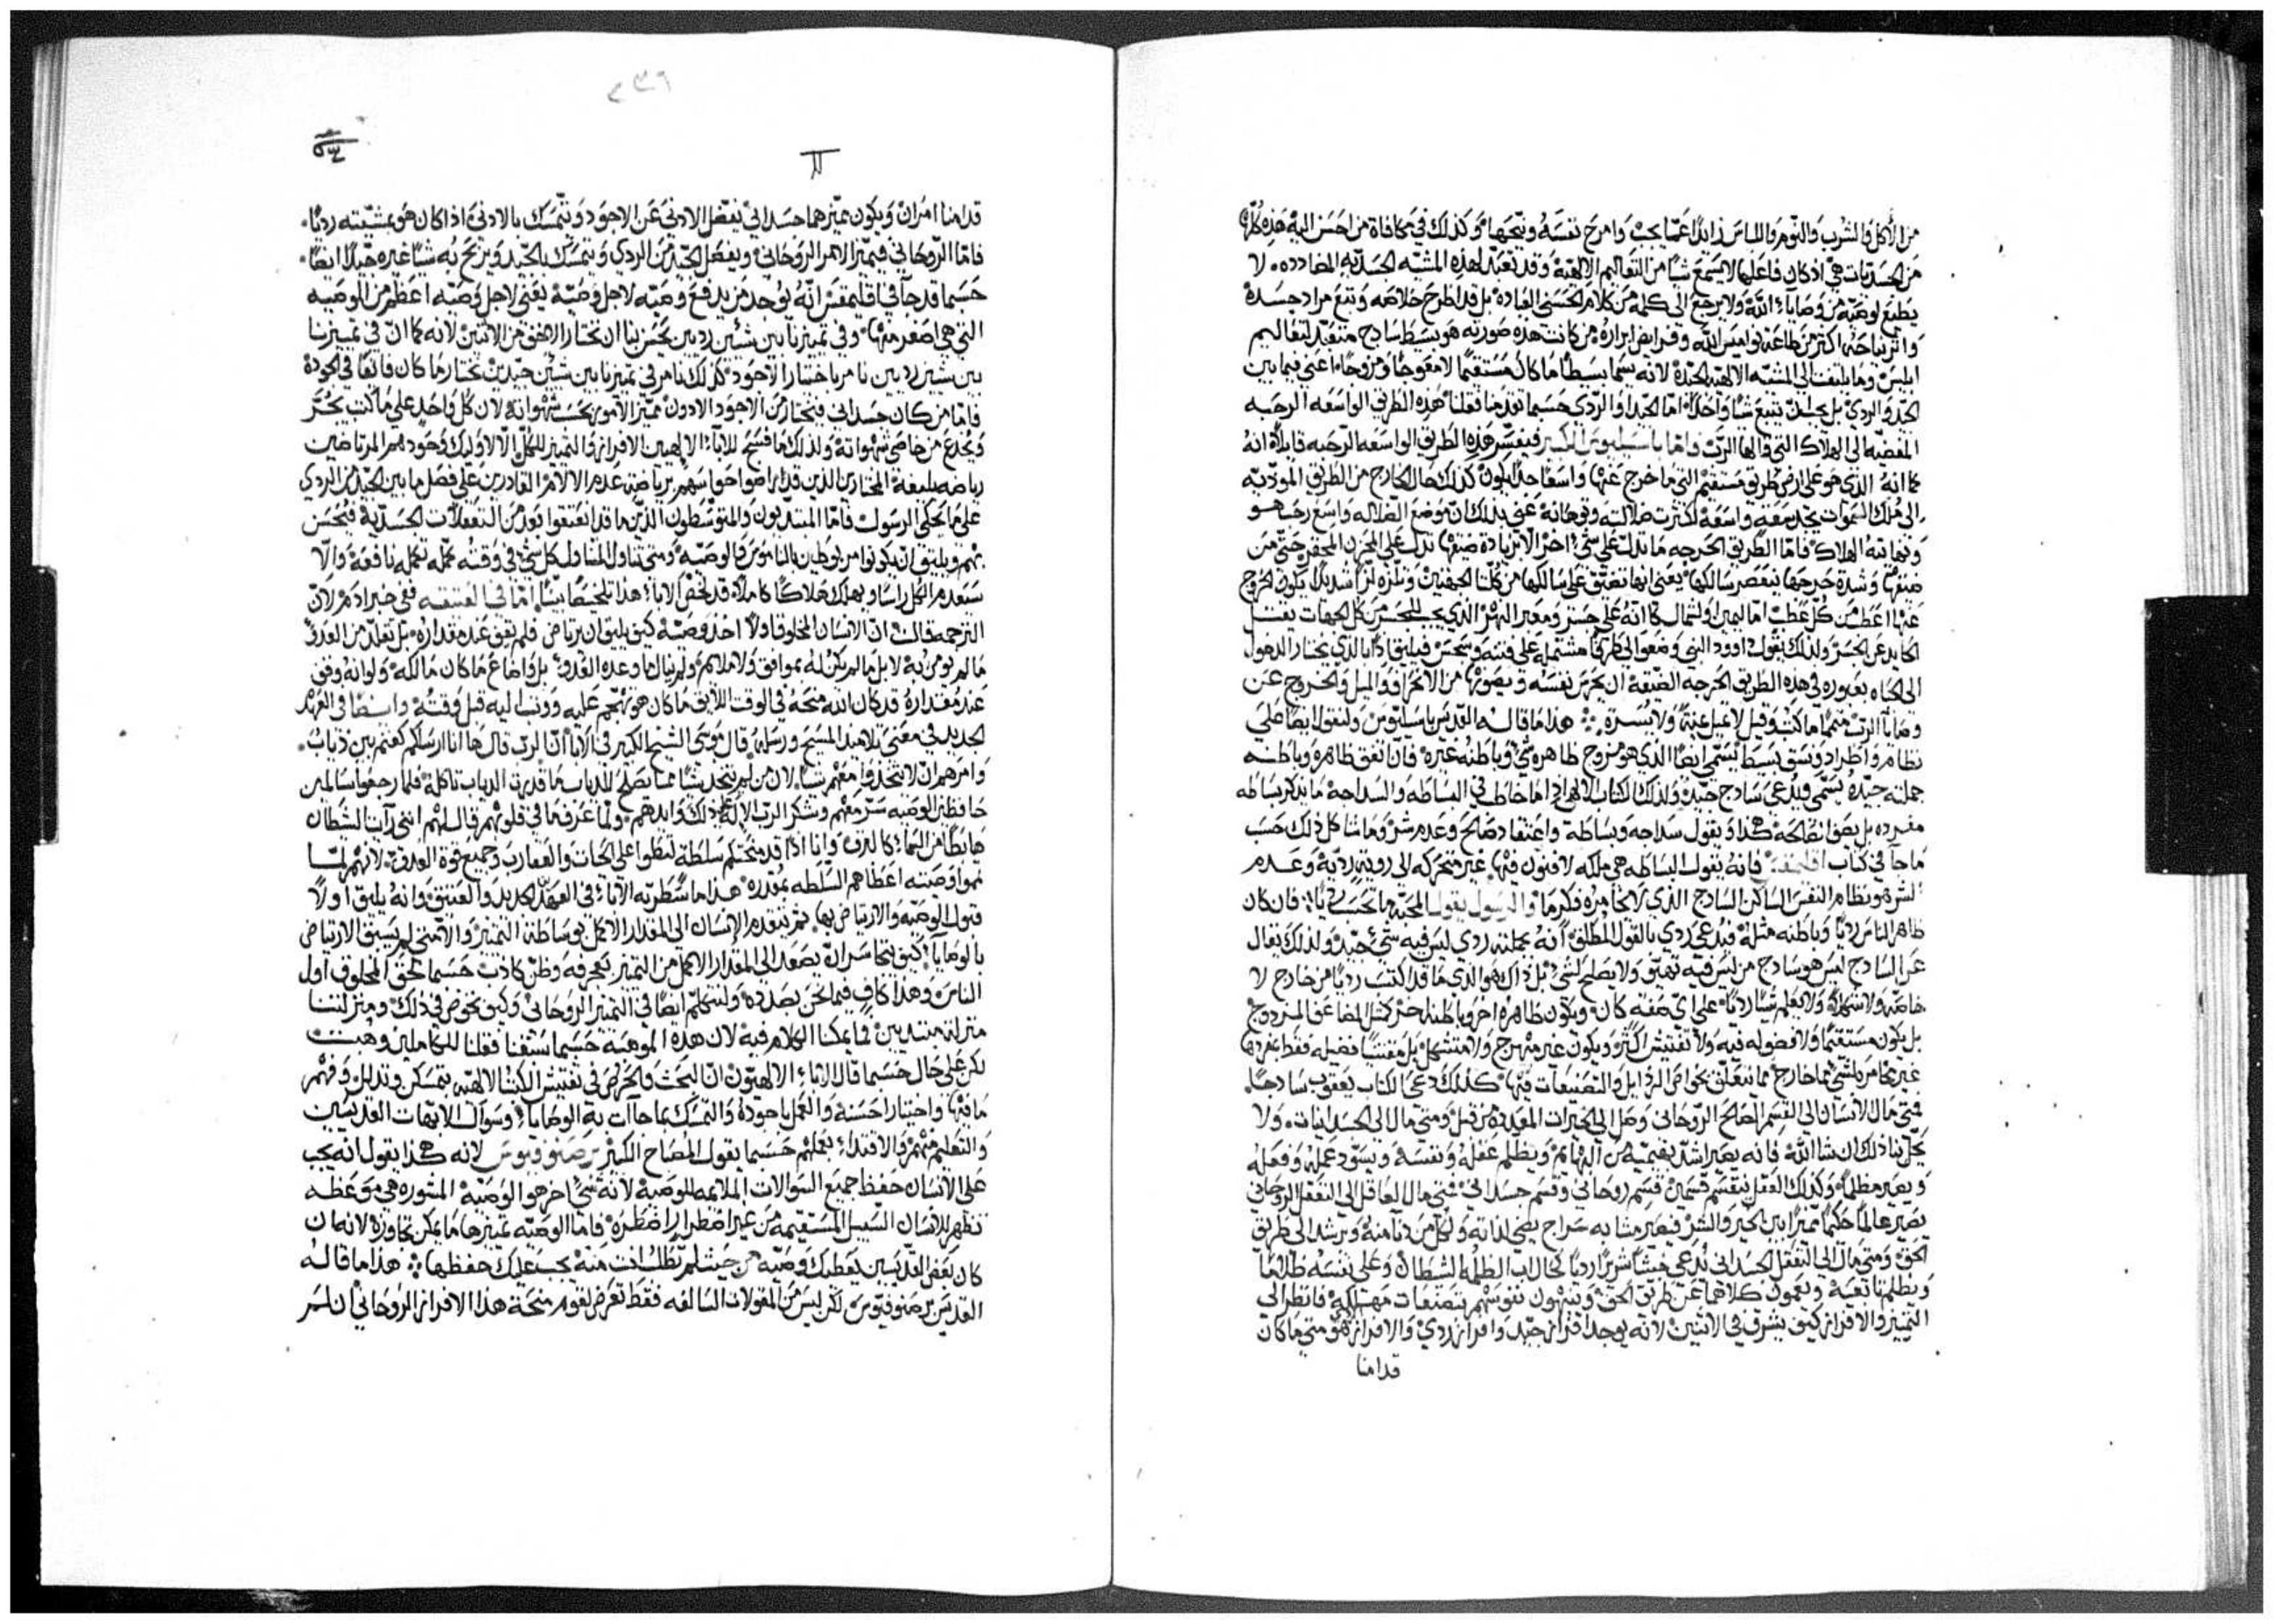 من الأكل والشرب والنوم واللباس زايدًا عمّا يجب وامرح نفسَهُ ونيّحها وكذلك في مكافاة من احسَن اليه هذه كلّها
من الجسدَيات هي اذ كان فاعلها لا يسمع شيًا من التعاليم الالهيّة وقد تعبّد لهذه المشيّه الجسَديّه المضادده. لا
يطيع لوصيّة من وصَاياء الله ولا يرجع الى كلمه من كلام الحسَن العباده بل قد اطرح خلاصَه وتبع مراد جسَدهُ
وارتياحَهُ اكثر من طاعَة نواميس الله وفرايض ابراره من كانت هذه صورته هو بسيط سادج متعبّد لتعاليم
ابليسَ وما يلتفت الى المشيّه الالهيّه الجيّدهْ لانه يسَمّا بسيطًا ما كان مستقيمًا لا معوجًا ومزوجًا اعني فيما بين
الجيّد والردي بل يتبع شيًا واحدًا امّا الجيّد او الردي حسَبما تقدّمنا فقلنا هذه الطريق الواسَعه الرحبه
المفضيّه الى الهلاك التي قالها الربّ واما باسيليوس الكبير فيفسّر هذه الطريق الواسعه الرحبه قايلًا انهُ
كما انهُ الذي هو على ارض طريق مستقيم التي ما خرج عنها واسعًا جدًا يكون كذلك حال الخارج من الطريق المودّيه
الى مُلك السَموات يجد سَعَه واسعَة لكثرت ضلالته وتوهانهُ عنى بذلك انّ موضع الضلاله واسع رحب هو
ونهايتهُ الهلاك فامّا الطريق الحرجه
ضيقها وشدة حرجها بتعصر سالكها يعنى انها تضيّق على سالكها من كلتا الجهتين وتلزه لزًا شديدًا يكون الخروج
عنها اعطب من كلّ عطبٍ امّا اليمين والشمال كما انهُ على جسر ومعبر النهر الذي يجب للتحرس من كل الجهات
الحايد عن الجسر ولذلك يقول داوود النبي وضعوا لى طريقًا مشتمله على فتنه وسجس فيليق اذًا بالذي يختار الدخول
الى الحياه بعبوره في هذه الطريق الحرجه الضيّقة ان يحرس نفسَه ويصونها من الانحراف والميل والخروج عن
وصايا الربّ متممًا ما كتبْ وقيل لا تميل يمنةً ولا يُسرة ❖ هذا ما قاله القديس باسيليوس ولنقول ايضًا ان
نظام واطراد ونسق بسيط يُسَمّى ايضًا الذي هو مزوج ظاهره شي وباطنهُ غيرهْ فان اتفق ظاهره وباطنه
جملته جيّدهْ يسَمّى ويُدعى سَادج جيّد ولذلك الكتاب الالهي اذا ما خاطب في البساطه والسداجهْ ما يذكر بساطه
مفرده بل يصف هكذا ويقول سداجه وبساطة واعتقاد صالح وعدم شرّ وما شاكل ذلك حَسَب
ما جاَ في كتاب اقليمقسْ فانهُ يقول البساطه هي ملكه لا فنون فيها غير متحركه الى رويّة رديّة وعدم
الشر هو نظام النفس الساكن السادج الذي لا يخامره فكر ما والرسول يقول المحبّة ما تحسَب رديًا فان كان
ظاهر الناس رديًا وباطنه مثلهْ فيدعى ردي بالقول المطلق انهُ بجملته ردي ليس فيه شيْ جيّد ولذلك يقال
عن السادج ليس هو سادج من ليس فيه تهيّق ولا يصلح لشي بل ذاك هو الذي ما قد اكتسَب رديًا من خارج لا
خاصّه ولا شركه ولا يعلم شيًا رديًا على ايّ صفه كان ويكون ظاهره اخر وباطنه اخر كمثل المضاعف المزدوج
بل يكون مستقيمًا ولا فضول فيه ولا تفتيش اكثر ويكون غير مبهرج ولا متشكل بل مقتنيًا فضيله فقط بمفردها
غير مخامر بشي ما خارج مما يتعلّق بخواص الرذايل والتصنيعات فيها كذلك دعَى الكتاب يعقوب سَادجًا.
فمتى مال الانسان الى القسَم الصالح الروحانى وصل الى الخيرات المقدم ذكرها من قبل ومتى مال الى الجسدانيات ولا
يحلّ بنا ذلك ان شا الله فانه يصير اشدّ بهيميّه من البهايم ويظلم عقلهُ ونفسَهُ ويسَوّد عملهُ وفعلهُ
ويصير مظلمًا وكذلك العقل ينقسم قسمين قسم روحاني وقسَم جسداني فمتى مال العاقل الى التعقل الروحاني
يصير عالمًا حكيمًا مميزًا بين الخير والشرّ فيصير مشابه سراج يضي لذاته ولكل من دنا منهُ ويرشد الى طريق
الحق ومتى مال الى التعقل الجسدانى يُدعى خبيثًا شريرًا رديًا كحال اب الظلمه الشيطان وعلى نفسهُ ظلامًا
ويظلم تابعيه ويعمون كلاهما عن طريق الحق ويتيهون نفوسهم بتصنعات مهلكه فانظر الى
التمييز والافراز كيف يشرق في الاثنين لانه يوجد افراز جيّد وافراز ردي والافراز هو متى ما كان
قدامنا
٢٣٦
قدامنا امران ويكون مميّزهما جسداني يفضّل الادنى عَن الاجوَد ويتمسَك بالادنى اذا كان هو بمشيّته رديًا.
فامّا الرّوحاني فيميّز الامر الروحَانى ويفضل الجيّد من الردي ويتمسَك بالجيّد ويربح به شيًا غيره جيّدًا ايضًا.
حَسَبما قد جاَ في اقليمقسْ انّه يوُجد من يدفع وصيّه لاجل وصيّة يعني لاجل وَصيّه اعظم من الوصيّه
التي هي اصغر منها وفي تمييزنا بين شيئين رديين يحسن بنا ان نختار الاخف من الاثنين لانه كما انّ في تمييزنا
بين شيين رديين نامر باختيار الاجود كذلك نامر في تمييزنا بين شيئين جيّدين نختار ما كان فايقًا في الجودهْ
فامّا من كان جسَداني فيختار من الاجود الادون مميّز الامور بحسَب شهواتهُ لان كلّ واحد على ما كُتبَ يُجَرّ
ويُخدع من خاصي شهواتهُ ولذلك ما فسَح للآباء الالهيين الافراز والتمييز للكلّ الّا لاوليك وحودهم المرتاضين
رياضه بليغة المختارين الذين قد راضوا حواسَهم برياضة عدم الالام القادرين على فصل ما بين الجيّد من الردي
على ما يحكي الرسول فامّا المبتديون والمتوسّطون الذين ما قد انعتقوا بعد من التعقلات الجسَديّة فيحسَن
بهم ويليق ان يكونوا مربوطين بالناموس والوصيّه ومتى تناول المتناول كل شي في وقته عمله تكمله نافعهْ والّا
سَيعدم الكل راسًا ويهلك هلاكًا كاملًا
الترجمه قالتْ انّ الانسَان المخلوق اولًا اخذ وصيّة كيف يليق ان يرتاض فلم يقف عند مقدارهْ بل تعلّم من العدوّ
ما لم يومر به لا بل ما لم يكن لهُ بموافق ولا ملايم ولم ينال ما وعده العَدوّ بل واضاع ما كان مالكه ولو انهُ وقف
عند مقداره قد كان الله منحَهُ في الوقت اللايق ما كان هو تهجّم عليه ووثب اليه قبل وقتُهْ وايضًا في العهد
الجديد في معنى تلاميذ المسيح ورسلهُ قال موسَى الشيخ الكبير في الآبا انّ الربّ قال ها انا ارسلكم كغنم بين ذيابْ.
وامرهم ان لا يتخذوا معهم شيًا لان من لم يتخذ شيًا مما يصلح للذياب ما قدرت الذياب تاكلهْ فلما رجعوا سالمين
حافظين الوصيّه سَرّ معهم وشكر الربّ الاله على ذلك وايّدهم ولمّا عرف ما في قلوبهم قال لهم انني رايت الشيطان
هابطًا من السَما كالبرق وانا اذًا قد منحتكم سلطة لتطوا على الحيات والعقارب وجميع قوة العدوّ لانهم لمّا
تمموا وصيّته اعطاهم السَلطه بمقدره هذا ما سَطرته الآباء في العهد الجديد والعتيق وانهُ يليق اولًا
قبول الوصيّه والارتياض بها ثم يتقدم الانسان الى المقدار الاكمل بوساطة التمييز والّا متى لم يسبق الارتياض
بالوصايا كيف يتجاسَر ان يصعد الى المقدار الاكمل من التمييز بعجرفه وظنّ كاذب حَسَبما لحق المخلوق اول
الناس وهذا كافٍ فيما نحن بصددهْ ولنتكلم ايضًا في التمييز الروحاني وكيف نخوض في ذلكْ ومنزلتنا
منزلة مبتديين فما يمكنا الكلام فيه لان هذه الموهبَة حَسَبما سَبقنا فقلنا للكاملين وهبت
لكن على حال حَسَبما قال الاباء الالهيون انّ البحث والحرص في تفتيش الكتب الالهيّه بتمسكن وتذلل وفهم
ما فيها واختيارًا حَسَنه والعمل باجودهْ والتمسك بما جاَت به الوصايا وسَوال الابهات القديسَين
والتعليم منهم والاقتداء بعملهم حَسَبما يقول المصَباح الكبير برصَنوفيوس لانه هكذا يقول انه يجب
على الانسَان حفظ جميع السَوالات الملايمه للوصيّهْ لانه شيْ اخر هو الوَصيّهْ المشوره هي موعظه
تظهر للانسان السَبيل المستقيمه من غير اضطرار اضطرهْ فاما الوصيّه تمييزها ما يمكن تجاوزهْ لانه ان
كان بعض القدّيسَين يعَطيك وصيّه من حيث لم تطلب انت منهْ يجب عليك حفظها ❖ هذا ما قالهُ
القديس برصنوفيوسْ لكن ليس من المقولات السَالفه فقط تعرض لقوم منحة هذا الافراز الروحَاني ان لم